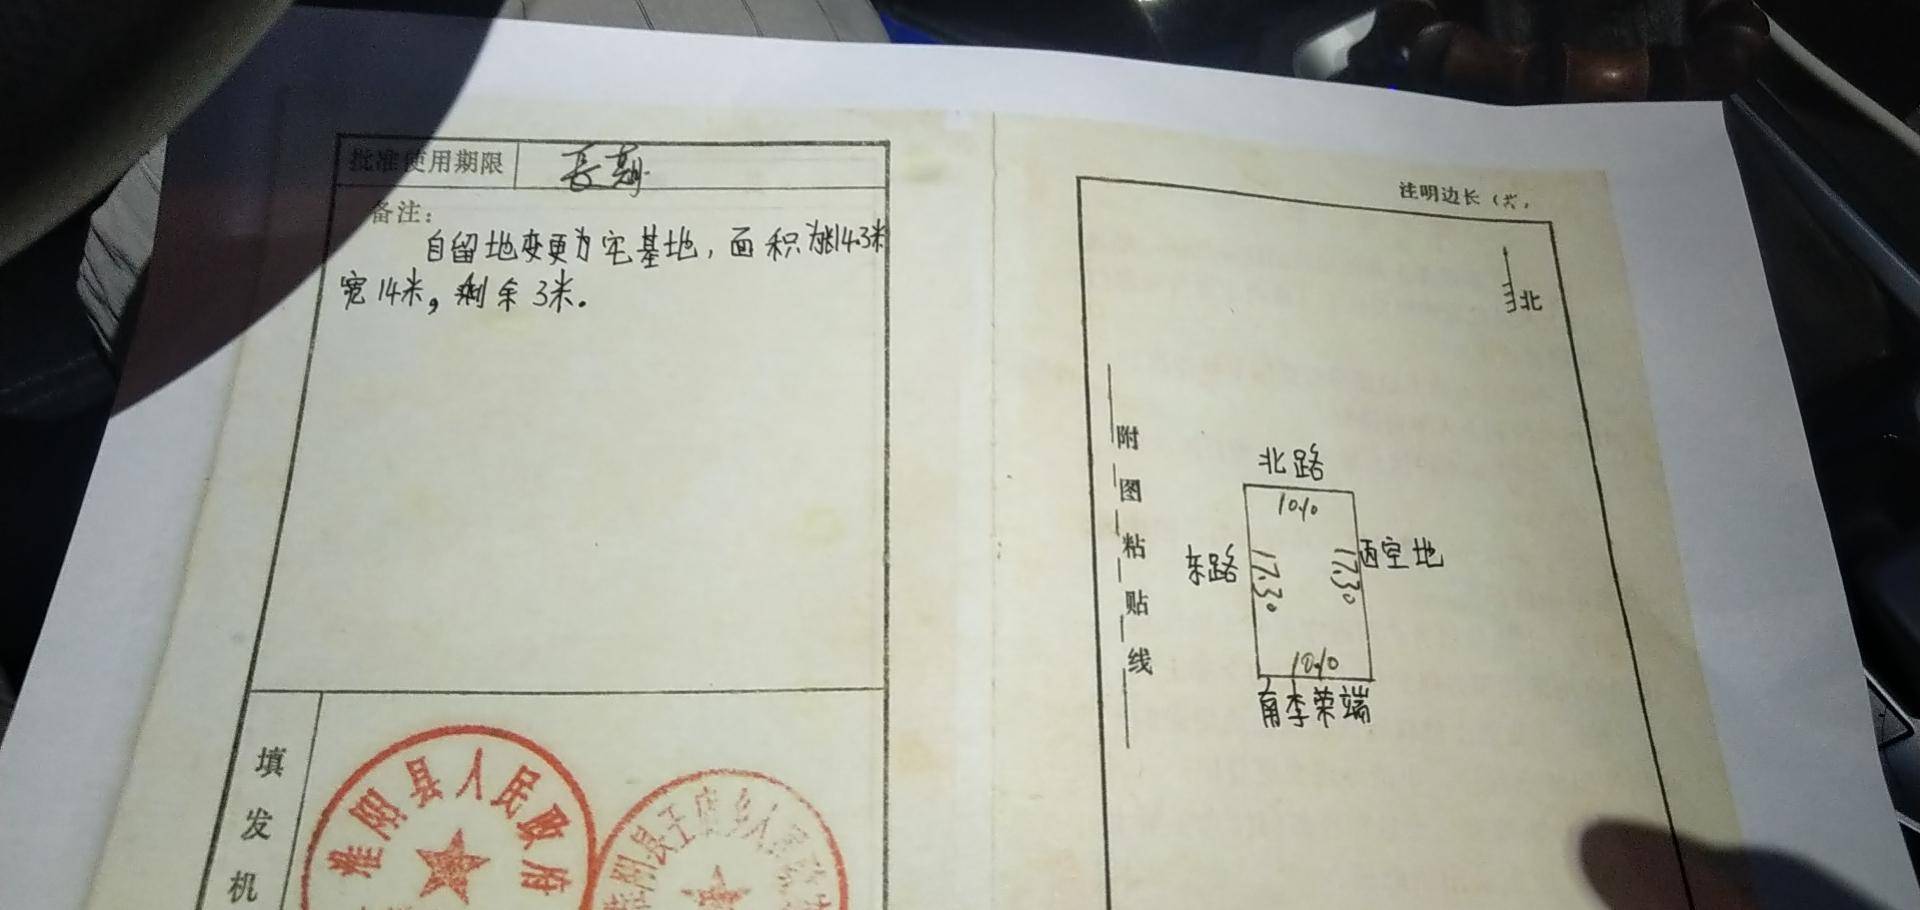 批准使用期限 长期
备注：
自留地变更为宅基地，面积为长14.3米
宽14米，剩余3米。
填
发
机
淮阳县人民政府
淮阳县王店乡人民政府
注明边长（
北
附
图
粘
贴
线
北路
10.10
东路
17.30
17.30
西空地
10.10
南李荣端